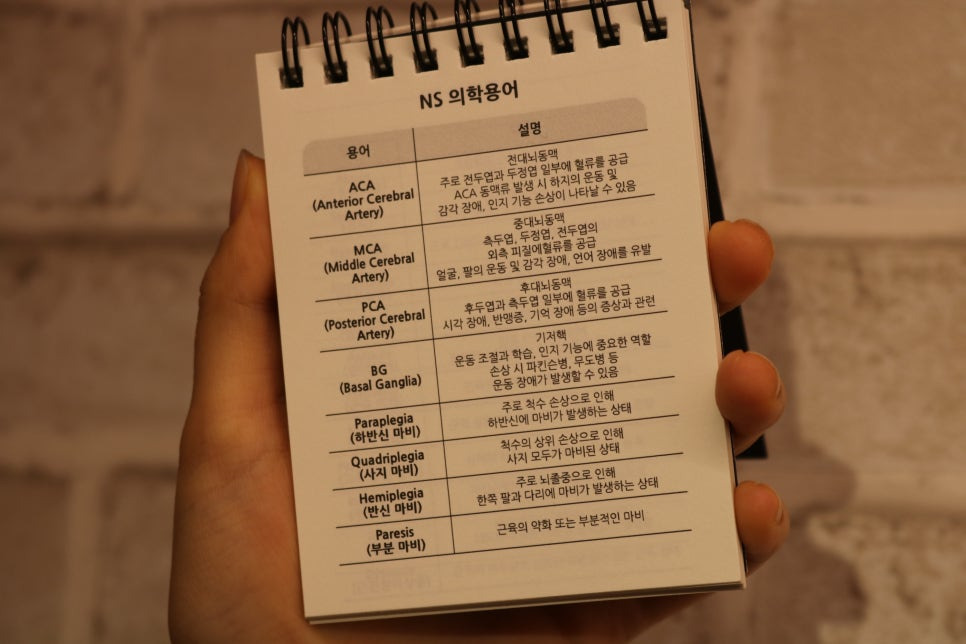 NS 의학용어
용어
설명
ACA
(Anterior Cerebral
Artery)
전대뇌동맥
주로 전두엽과 두정엽 일부에 혈류를 공급
ACA 동맥류 발생 시 하지의 운동 및
감각 장애, 인지 기능 손상이 나타날 수 있음
MCA
(Middle Cerebral
Artery)
중대뇌동맥
측두엽, 두정엽, 전두엽의
외측 피질에혈류를 공급
얼굴, 팔의 운동 및 감각 장애, 언어 장애를 유발
PCA
(Posterior Cerebral
Artery)
후대뇌동맥
후두엽과 측두엽 일부에 혈류를 공급
시각 장애, 반맹증, 기억 장애 등의 증상과 관련
BG
(Basal Ganglia)
기저핵
운동 조절과 학습, 인지 기능에 중요한 역할
손상 시 파킨슨병, 무도병 등
운동 장애가 발생할 수 있음
Paraplegia
(하반신 마비)
주로 척수 손상으로 인해
하반신에 마비가 발생하는 상태
Quadriplegia
(사지 마비)
척수의 상위 손상으로 인해
사지 모두가 마비된 상태
Hemiplegia
(반신 마비)
주로 뇌졸중으로 인해
한쪽 팔과 다리에 마비가 발생하는 상태
Paresis
(부분 마비)
근육의 약화 또는 부분적인 마비